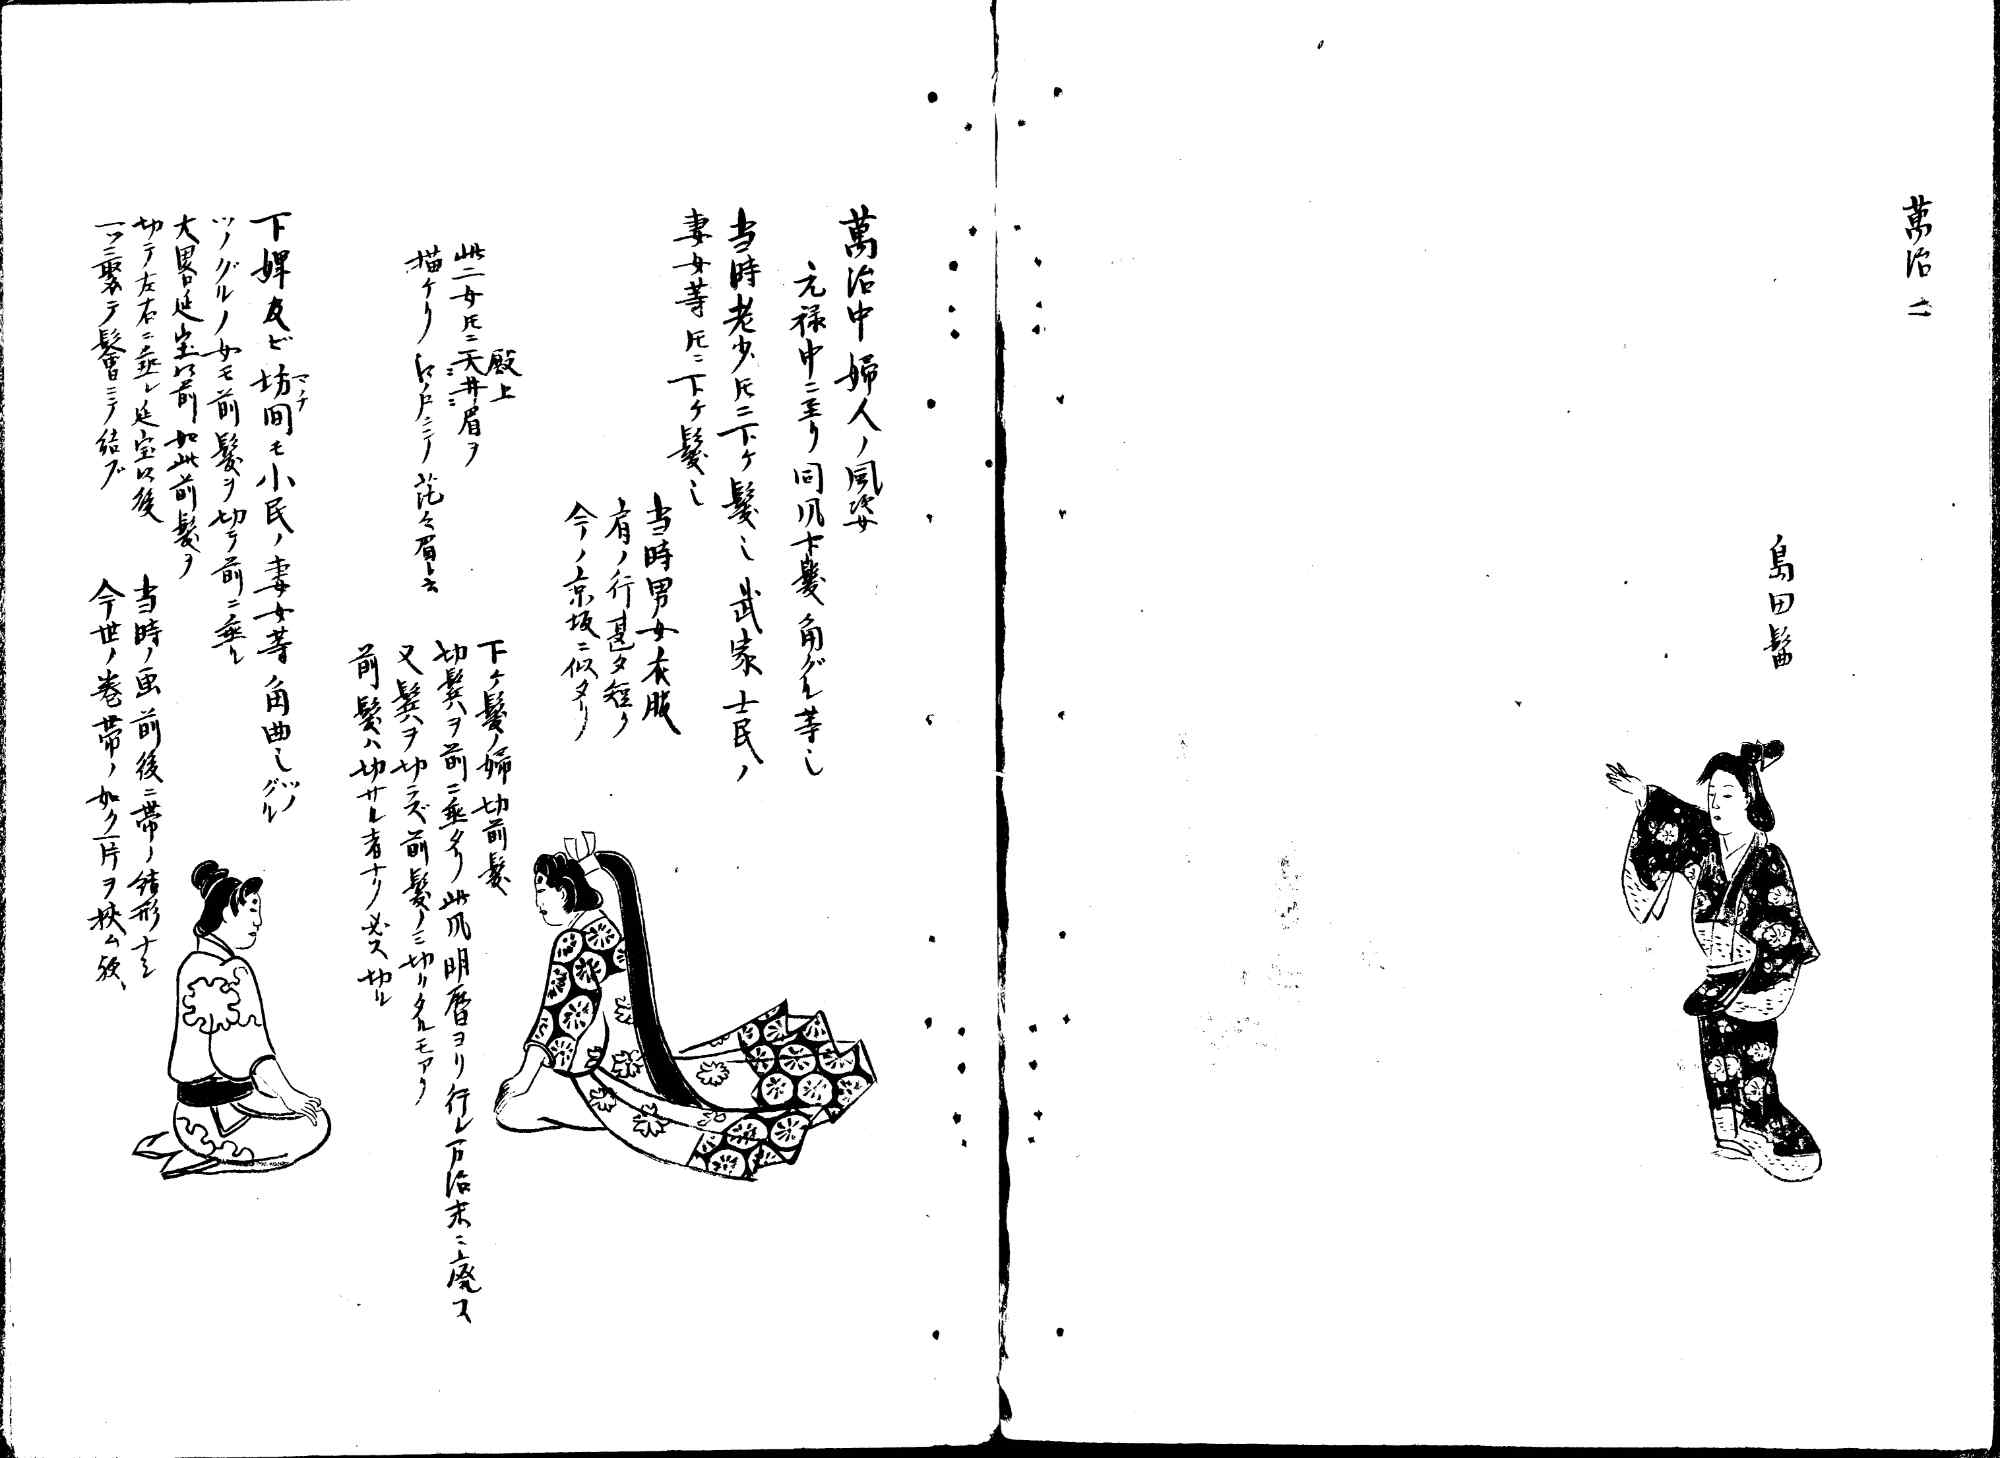 萬治 二
島田髷
萬治中婦人ノ風姿
元禄中ニ至リ同風下髪角グル等シ
当時老少𪜈ニ下ケ髪シ武家士民ノ
妻女等𪜈ニ下ケ髪シ
当時男女衣服
肩ノ行甚タ短ク
今ノ京坂ニ似タリ
殿上
此二女𪜈ニ天井眉ヲ
描ケリ江戸ニテ茫々眉ト云
下ケ髪ノ婦切前髪
切鬂ヲ前ニ垂タリ此風明暦ヨリ行レ万治末ニ廃ス
又鬂ヲ切ラズ前髪ノミ切リタルモアリ
前髪ハ切サル者ナリ必ス切ル
下婢及ビ坊間モ小民ノ妻女等角曲シツノグル
マチ
ツノグルノ女モ前髪ヲ切テ前ニ垂ル
大畧延宝以前如此前髪ヲ
切テ左右ニ垂レ延宝以後
一ツニ聚テ髷ニテ結ブ
当時ノ画前後ニ帯ノ結形ナシ
今世ノ巻帯ノ如ク片ヲ挟ム歟